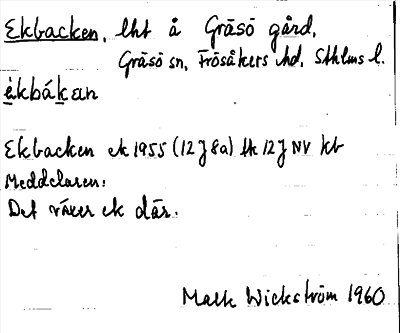 Ekbacken, lht å Gräsö gård,
Gräsö sn, Frösåkers hd, Sthlms l.
èkbákan
Ekbacken ek 1955 (12J 8a) tk 12J NV kb
Meddelaren:
Det växer ek där.
Mats Wickström 1960